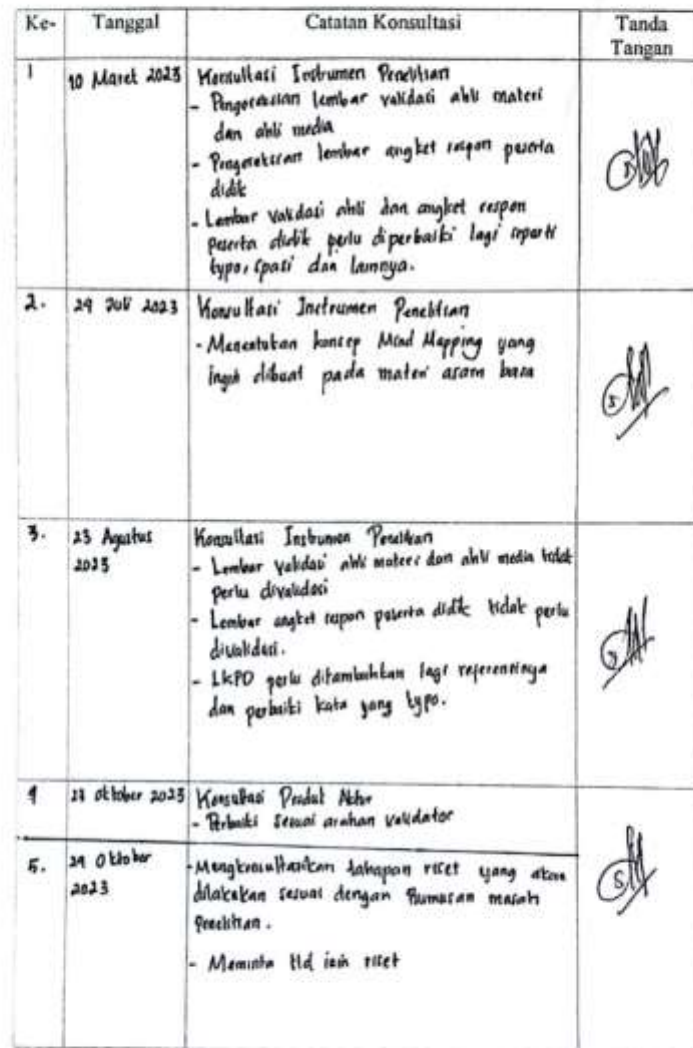 Ke- Tanggal Catatan Konsultasi Tanda Tangan
1 10 Maret 2023 Konsultasi Instrumen Penelitian
- Pengoreksian lembar validasi ahli materi
dan ahli media
- Pengoreksian lembar angket respon peserta
didik
- Lembar validasi ahli dan angket respon
peserta didik perlu diperbaiki lagi seperti
typo, spasi dan lainnya.
2. 29 Juli 2023 Konsultasi Instrumen Penelitian
- Menentukan konsep Mind Mapping yang
ingin dibuat pada materi asam basa
3. 23 Agustus Konsultasi Instrumen Penelitian
2023 - Lembar validasi ahli materi dan ahli media tidak
perlu divalidasi
- Lembar angket respon peserta didik tidak perlu
divalidasi.
- LKPD perlu ditambahkan lagi referensinya
dan perbaiki kata yang typo.
4 Oktober 2023 Konsultasi Produk Akhir
- Perbaiki sesuai arahan validator
5. 29 Oktober - Mengkonsultasikan tahapan riset yang akan
2023 dilakukan sesuai dengan Rumusan masalah
Penelitian.
- Meminta ttd izin riset